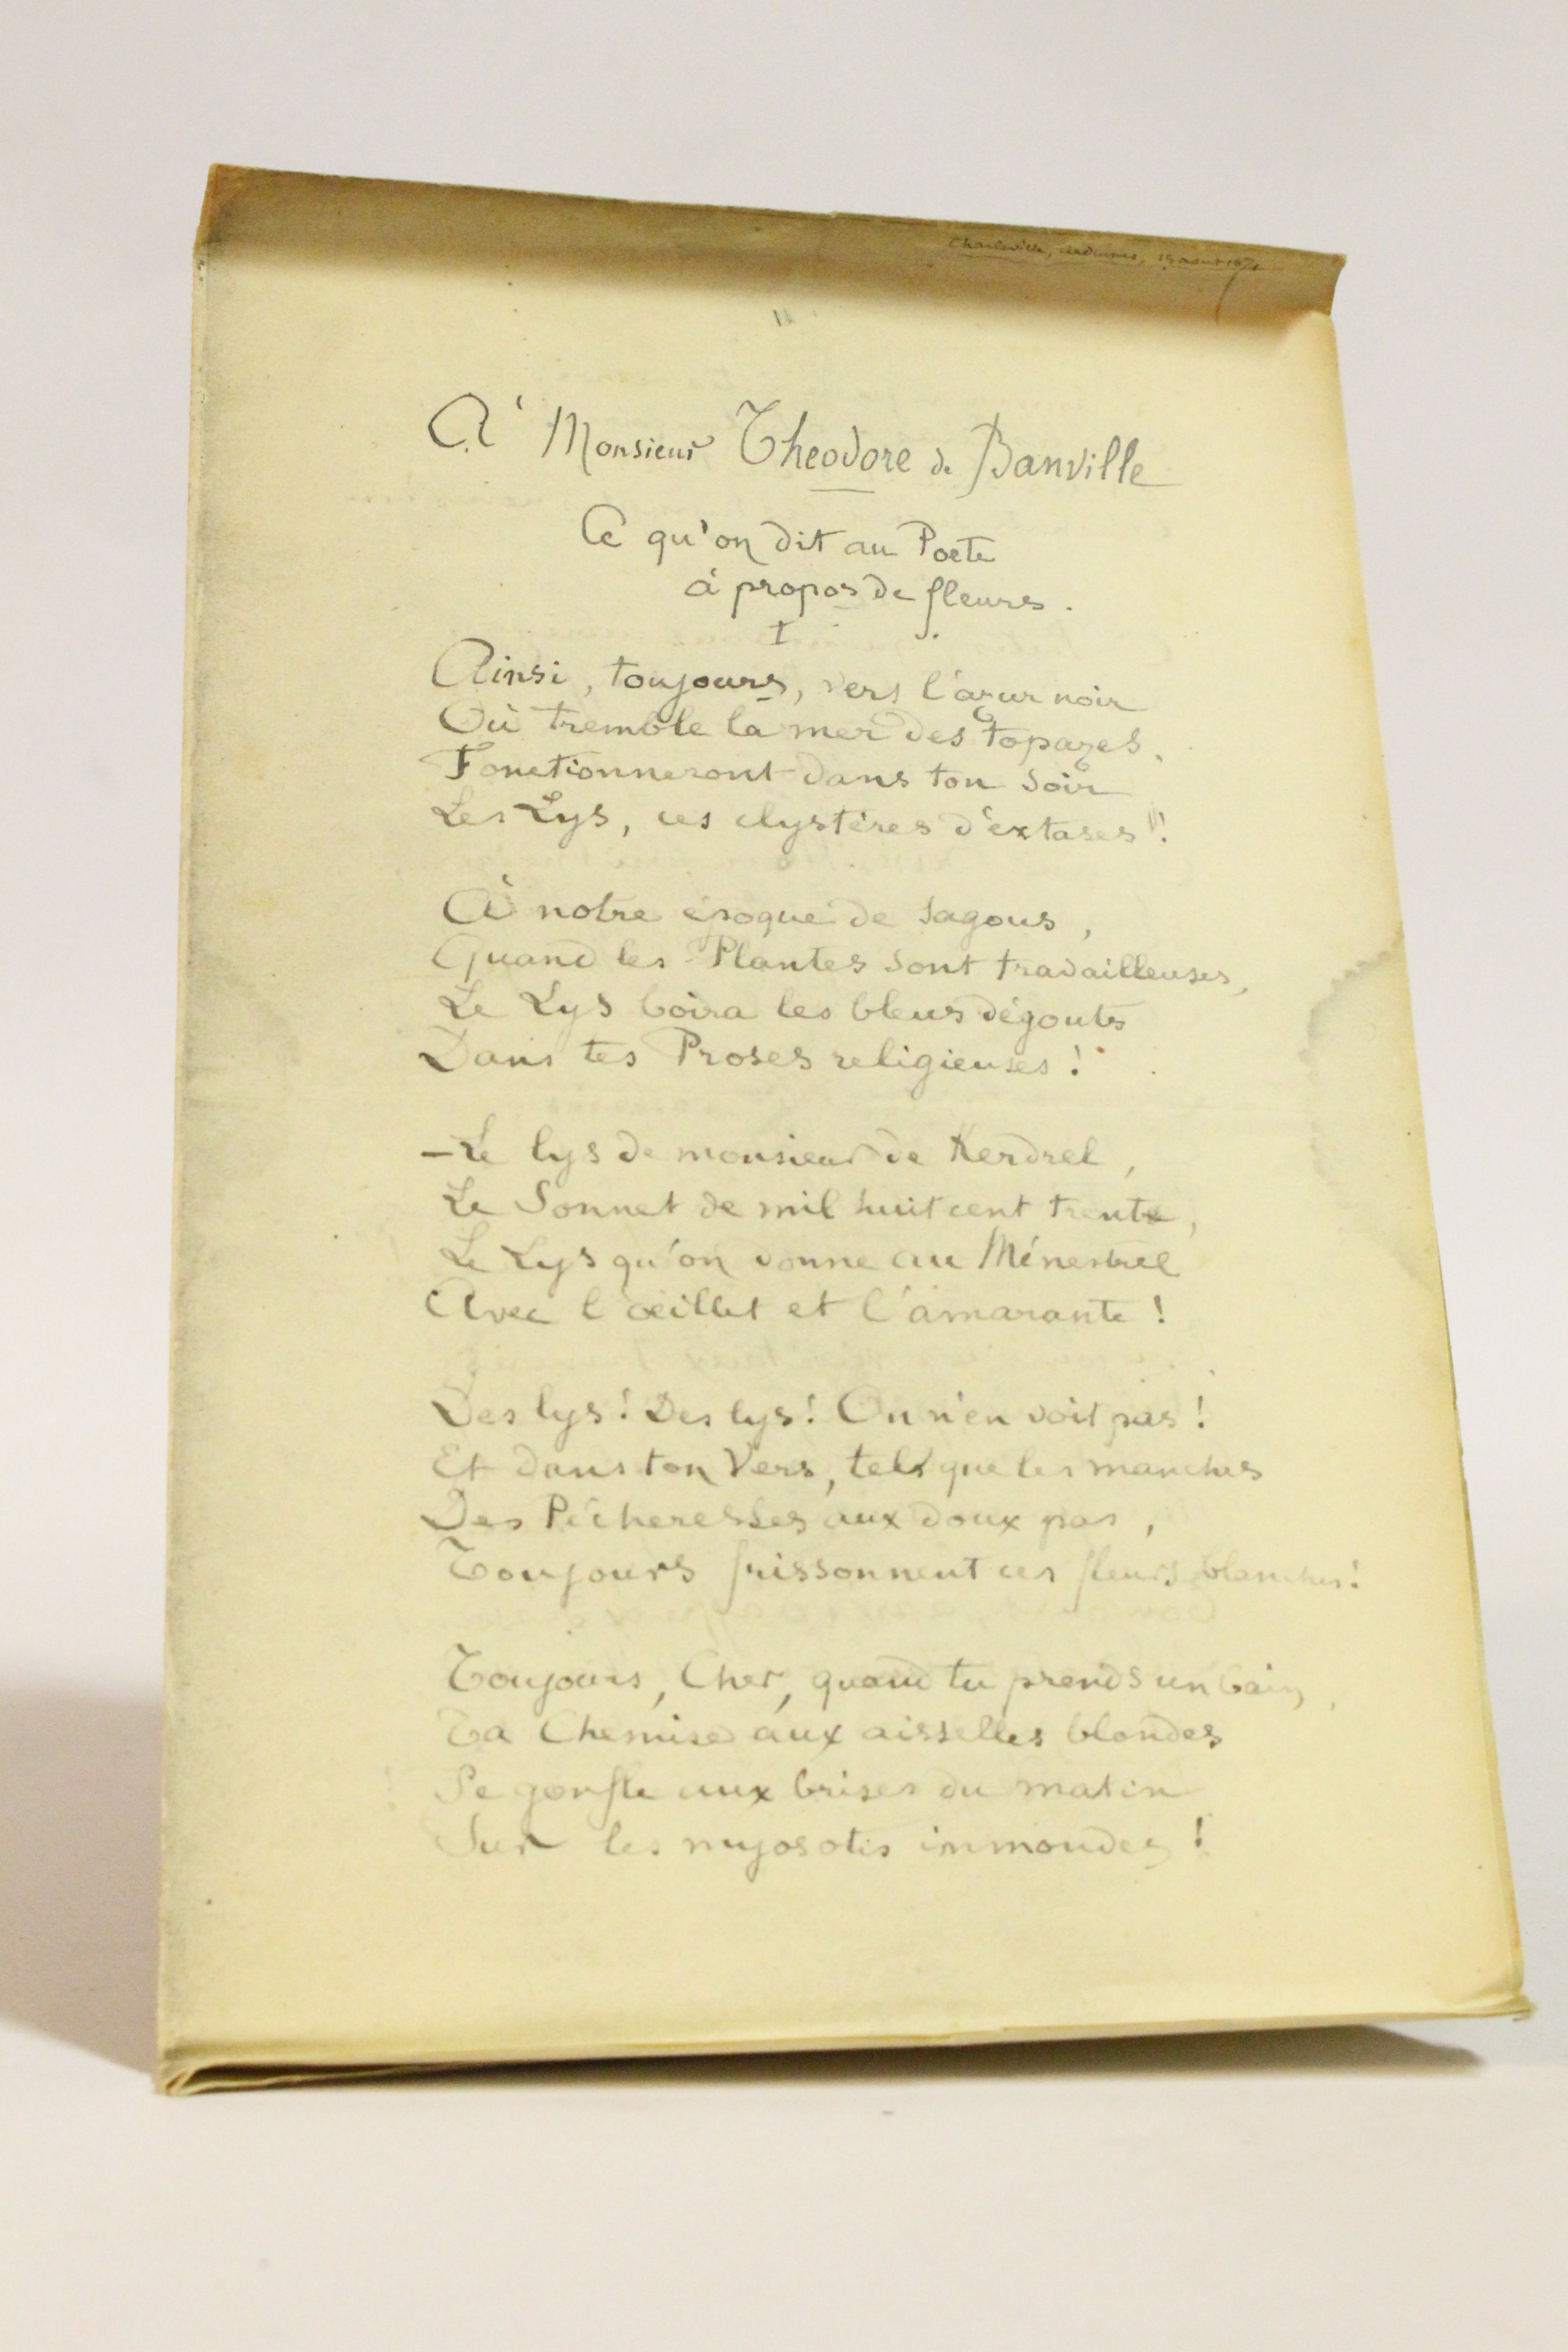 Charleville, Ardennes, 15 août 1871
À Monsieur Théodore de Banville
Ce qu'on dit au Poète
à propos de fleurs.
I
Ainsi, toujours, vers l'azur noir
Où tremble la mer des topazes,
Fonctionneront dans ton soir
Les Lys, ces clystères d'extases !
À notre époque de sagous,
Quand les Plantes sont travailleuses,
Le Lys boira les bleus dégoûts
Dans tes Proses religieuses !
– Le lys de monsieur de Kerdrel,
Le Sonnet de mil huit cent trente,
Le Lys qu'on donne au Ménestrel
Avec l'œillet et l'amarante !
Des lys ! Des lys ! On n'en voit pas !
Et dans ton Vers, tel que les manches
Des Pécheresses aux doux pas,
Toujours frissonnent ces fleurs blanches !
Toujours, Cher, quand tu prends un bain,
Ta Chemise aux aisselles blondes
Se gonfle aux brises du matin
Sur les myosotis immondes !